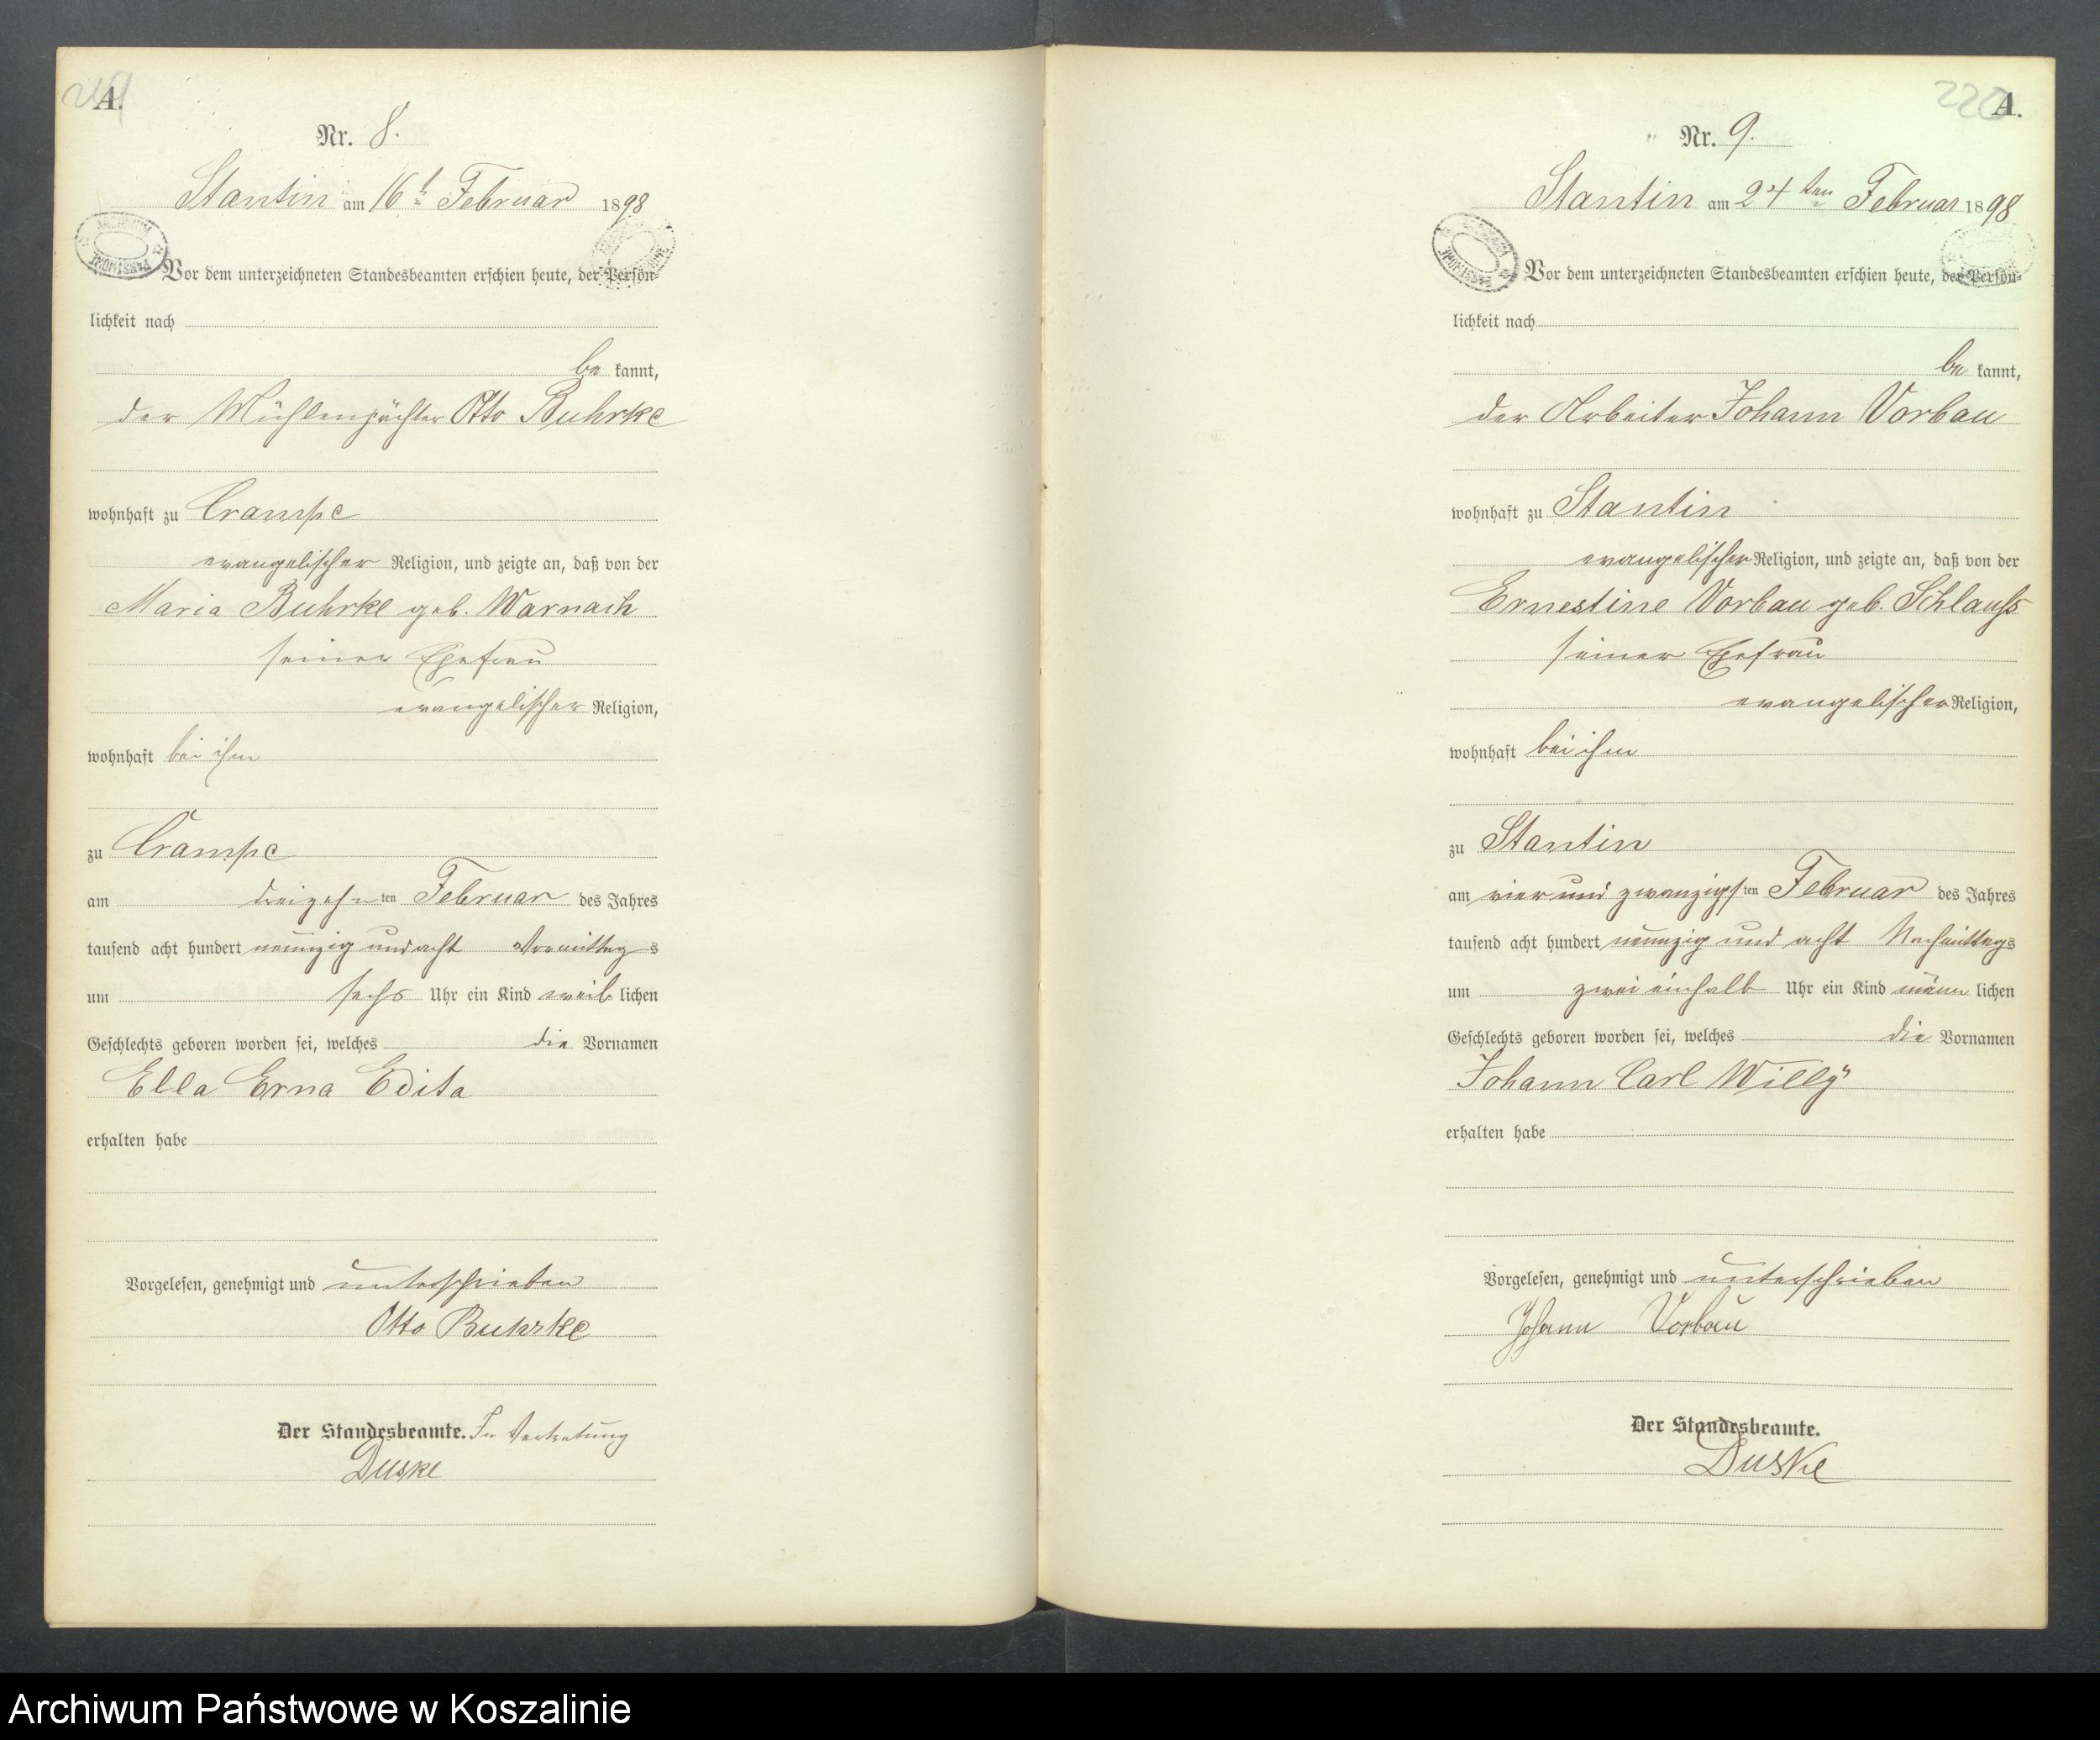 219
A.
Nr. 8.
Stantin am 16t Februar 1898
Vor dem unterzeichneten Standesbeamten erschien heute, der Persön-
lichkeit nach
be kannt,
der Mühlenpächter Otto Buhrke
wohnhaft zu Crampe
evangelischer Religion, und zeigte an, daß von der
Maria Buhrke geb. Warnach
seiner Ehefrau
evangelischer Religion,
wohnhaft bei ihm
zu Crampe
am dreizehn ten Februar des Jahres
tausend acht hundert neunzig und acht Vormittag s
um sechs Uhr ein Kind weib lichen
Geschlechts geboren worden sei, welches die Vornamen
Ella Erna Edita
erhalten habe
Vorgelesen, genehmigt und unterschrieben
Otto Buhrke
Der Standesbeamte. In Vertretung
Duske
220
A.
Nr. 9.
Stantin am 24ten Februar 1898
Vor dem unterzeichneten Standesbeamten erschien heute, der Persön-
lichkeit nach
be kannt,
der Arbeiter Johann Vorbau
wohnhaft zu Stantin
evangelischer Religion, und zeigte an, daß von der
Ernestine Vorbau geb. Schlauss
seiner Ehefrau
evangelischer Religion,
wohnhaft bei ihm
zu Stantin
am vier und zwanzigs ten Februar des Jahres
tausend acht hundert neunzig und acht Nachmittags
um zwei einhalb Uhr ein Kind männ lichen
Geschlechts geboren worden sei, welches die Vornamen
Johann Carl Willy
erhalten habe
Vorgelesen, genehmigt und unterschrieben
Johann Vorbau
Der Standesbeamte.
Duske
Archiwum Państwowe w Koszalinie